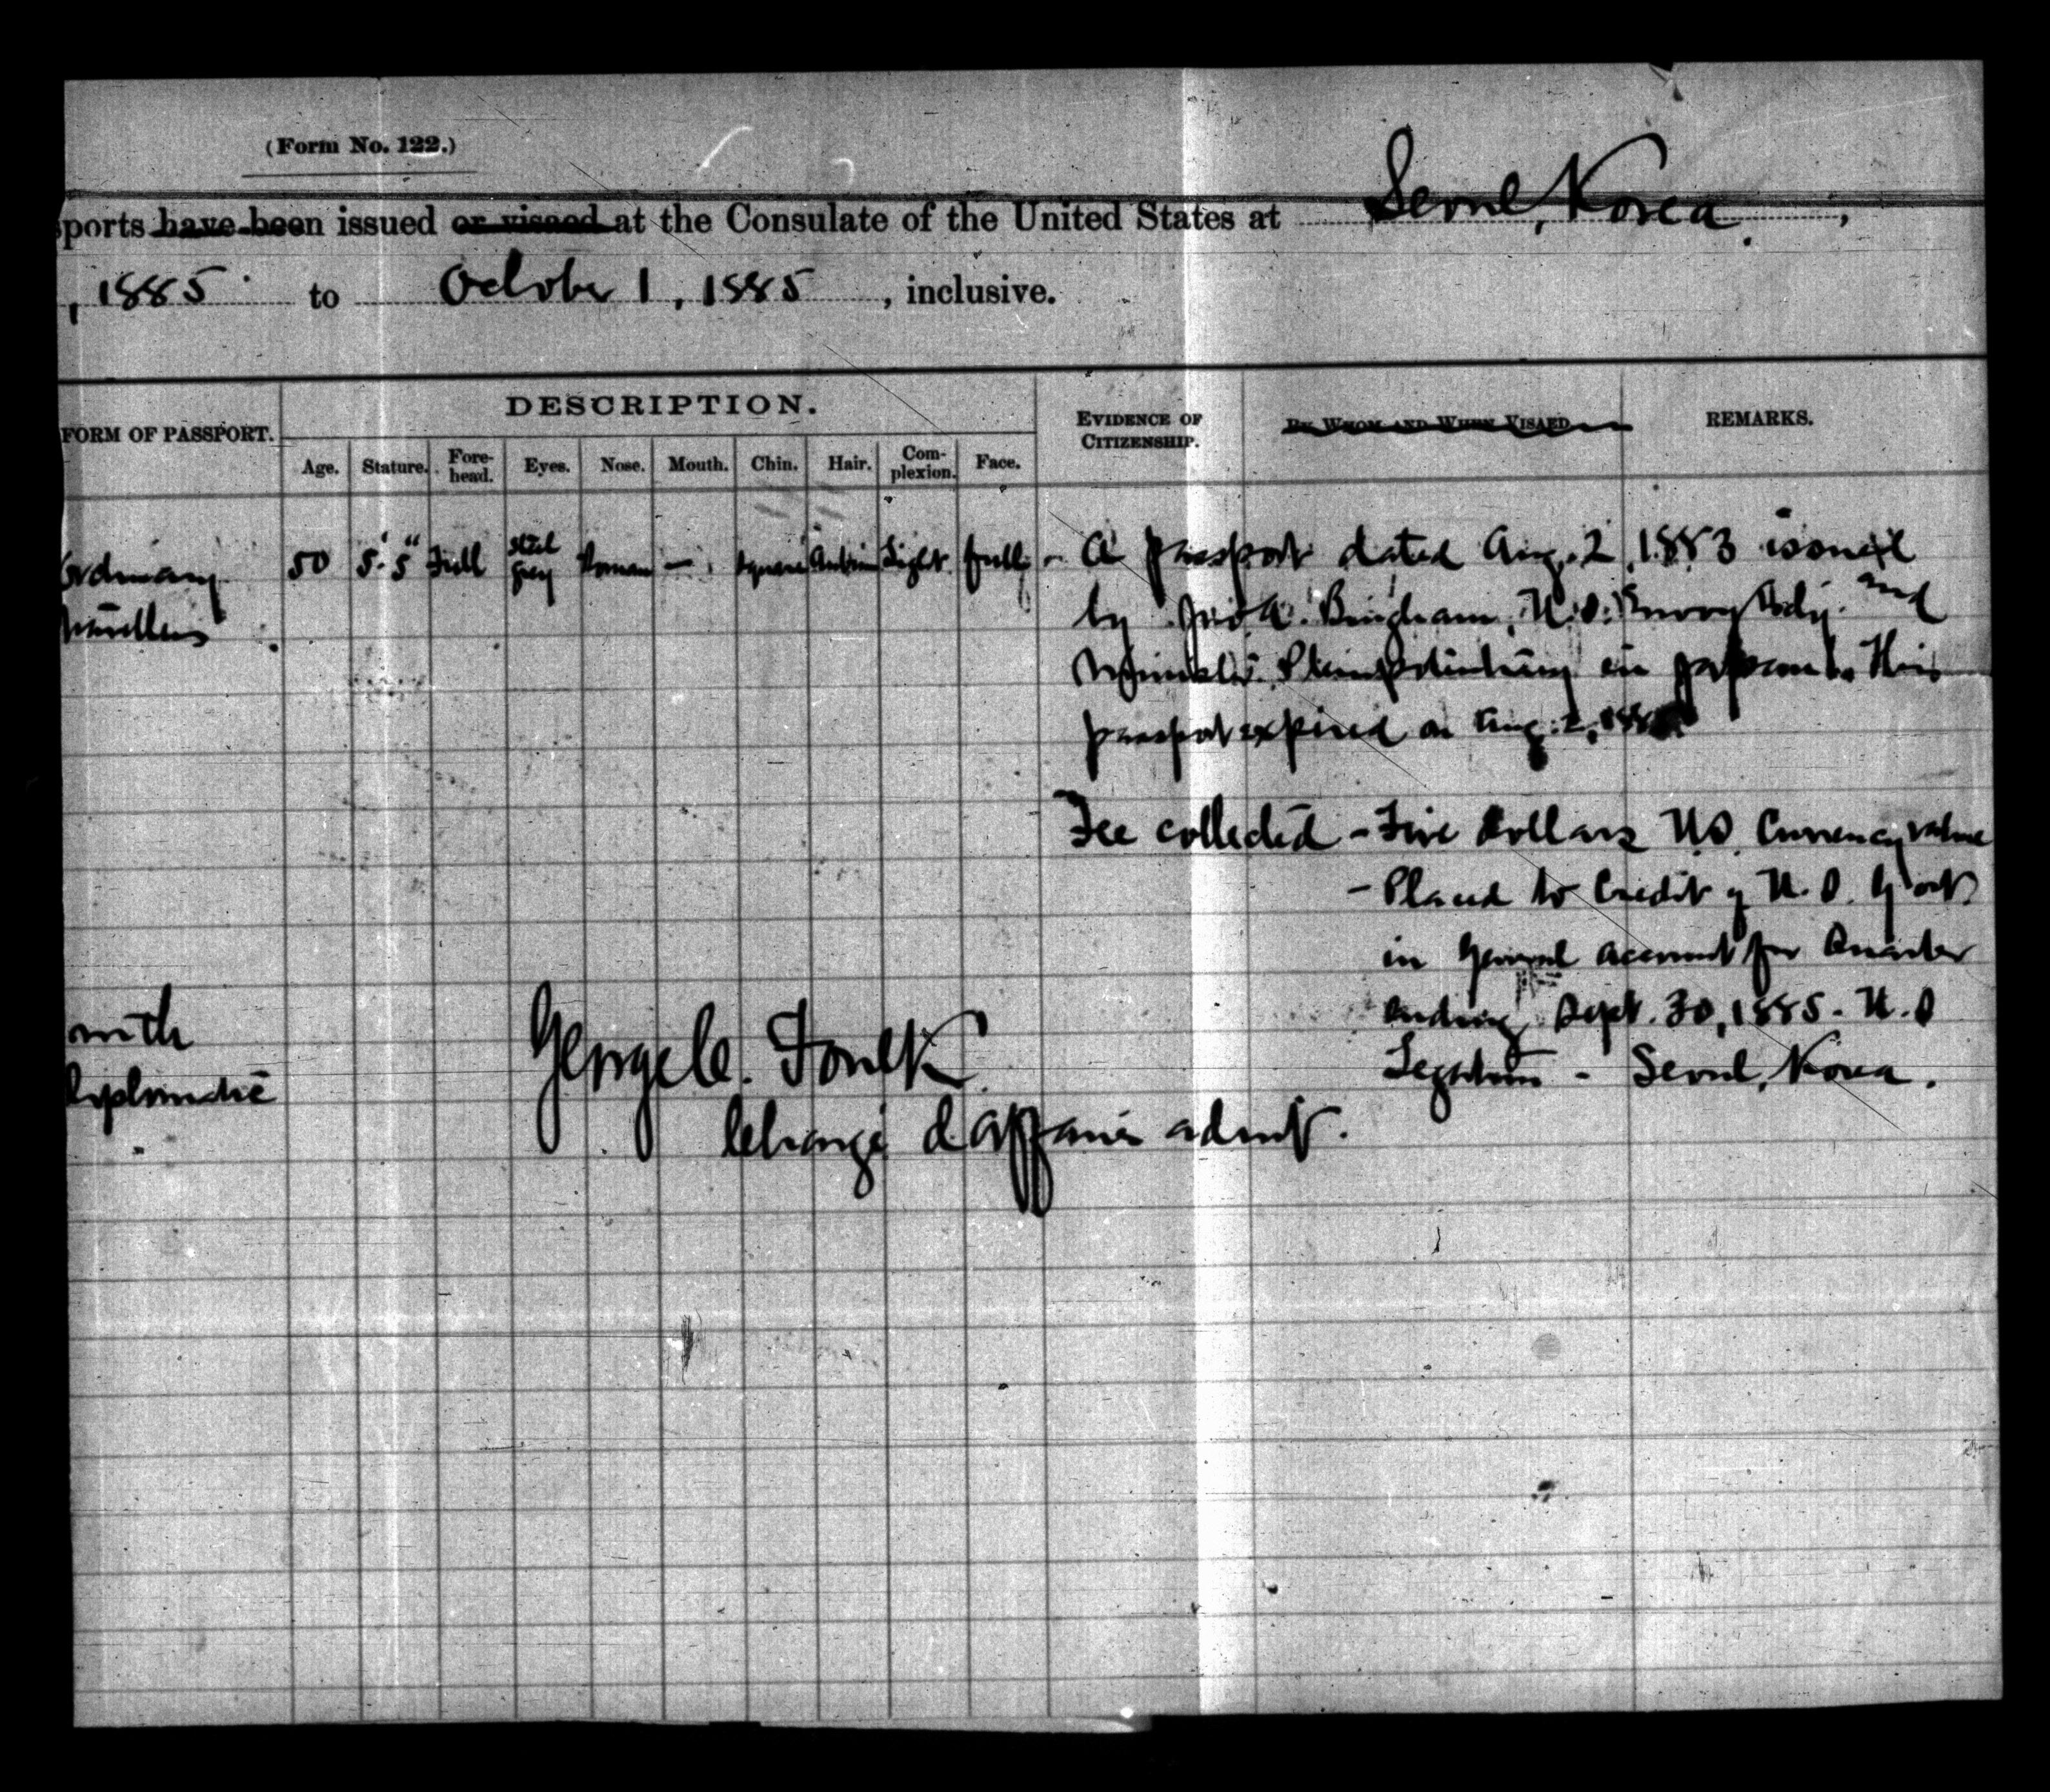 (Form No. 122.)
sports have been issued or visaed at the Consulate of the United States at Seoul, Korea.,
, 1885 to October 1, 1885, inclusive.
FORM OF PASSPORT.
DESCRIPTION.
EVIDENCE OF CITIZENSHIP.
BY WHOM AND WHEN VISAED.
REMARKS.
Age. Stature. Fore-head. Eyes. Nose. Mouth. Chin. Hair. Com-plexion. Face.
Ordinary
travellers
50 5' 5" Full Steel Grey Roman — Square Auburn Light full
- A passport dated Aug. 2, 1883 issued
by Jno. A. Bingham, U.S. Envoy Extdy. and
Minister Plenipotentiary in Japan. This
passport expired on Aug. 2, 188
Fee collected - Five dollars U.S. Currency value
- Placed to Credit of U.S. Govt.
in General account for Quarter
ending Sept. 30, 1885 - U.S
Legation - Seoul, Korea.
with
diplomatic
George C. Foulk
Chargé d'affaires ad int.